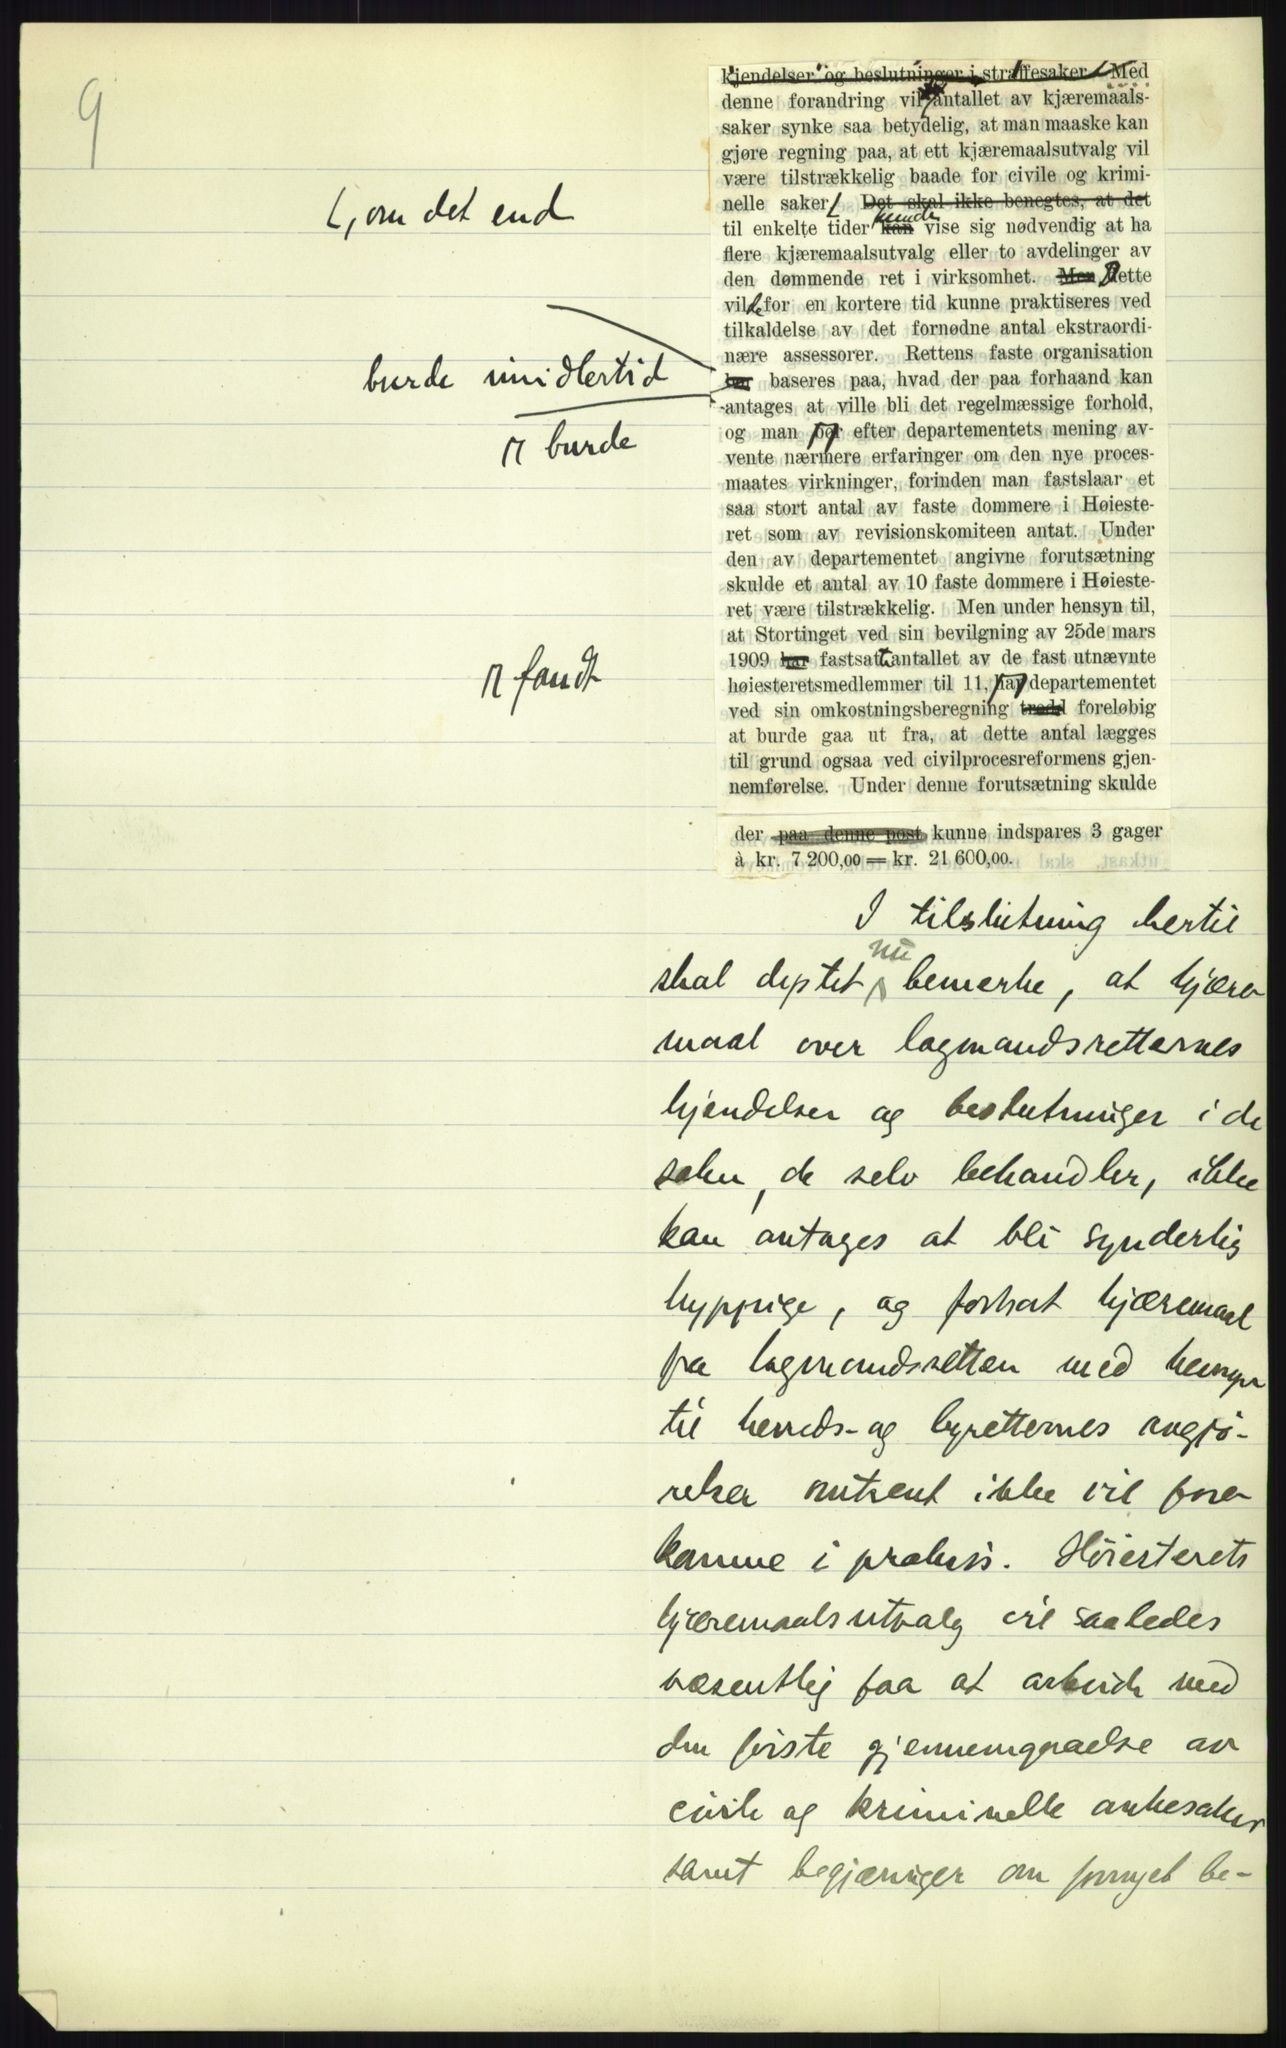 9
kjendelser og beslutninger i straffesaker. Med
denne forandring vil antallet av kjæremaals-
saker synke saa betydelig, at man maaske kan
gjøre regning paa, at ett kjæremaalsutvalg vil
være tilstrækkelig baade for civile og krimi-
nelle saker. Det skal ikke benegtes, at det
, om det end
kunde
til enkelte tider kan vise sig nødvendig at ha
flere kjæremaalsutvalg eller to avdelinger av
den dømmende ret i virksomhet. Men Dette
vilde for en kortere tid kunne praktiseres ved
tilkaldelse av det fornødne antal ekstraordi-
nære assessorer. Rettens faste organisation
burde imidlertid
bør baseres paa, hvad der paa forhaand kan
antages at ville bli det regelmæssige forhold,
og man bør efter departementets mening av-
burde
vente nærmere erfaringer om den nye proces-
maates virkninger, forinden man fastslaar et
saa stort antal av faste dommere i Høieste-
ret som av revisionskomiteen antat. Under
den av departementet angivne forutsætning
skulde et antal av 10 faste dommere i Høieste-
ret være tilstrækkelig. Men under hensyn til,
at Stortinget ved sin bevilgning av 25de mars
1909 har fastsatt antallet av de fast utnævnte
høiesteretsmedlemmer til 11, har departementet
fandt
ved sin omkostningsberegning trodd foreløbig
at burde gaa ut fra, at dette antal lægges
til grund ogsaa ved civilprocesreformens gjen-
nemførelse. Under denne forutsætning skulde
der paa denne post kunne indspares 3 gager
à kr. 7 200,00 = kr. 21 600,00.
I tilslutning hertil
nu
skal deptet bemerke, at kjære-
maal over lagmandsretternes
kjendelser og beslutninger i de
saker, de selv behandler, ikke
kan antages at bli synderlig
hyppige, og fortsat kjæremaal
fra lagmandsretten med hensyn
til herreds- og byretternes avgjø-
relser omtrent ikke vil fore-
komme i praksis. Høiesterets
kjæremaalsutvalg vil saaledes
væsentlig faa at arbeide med
den første gjennemgaaelse av
civile og kriminelle ankesaker
samt begjæringer om fornyet be-